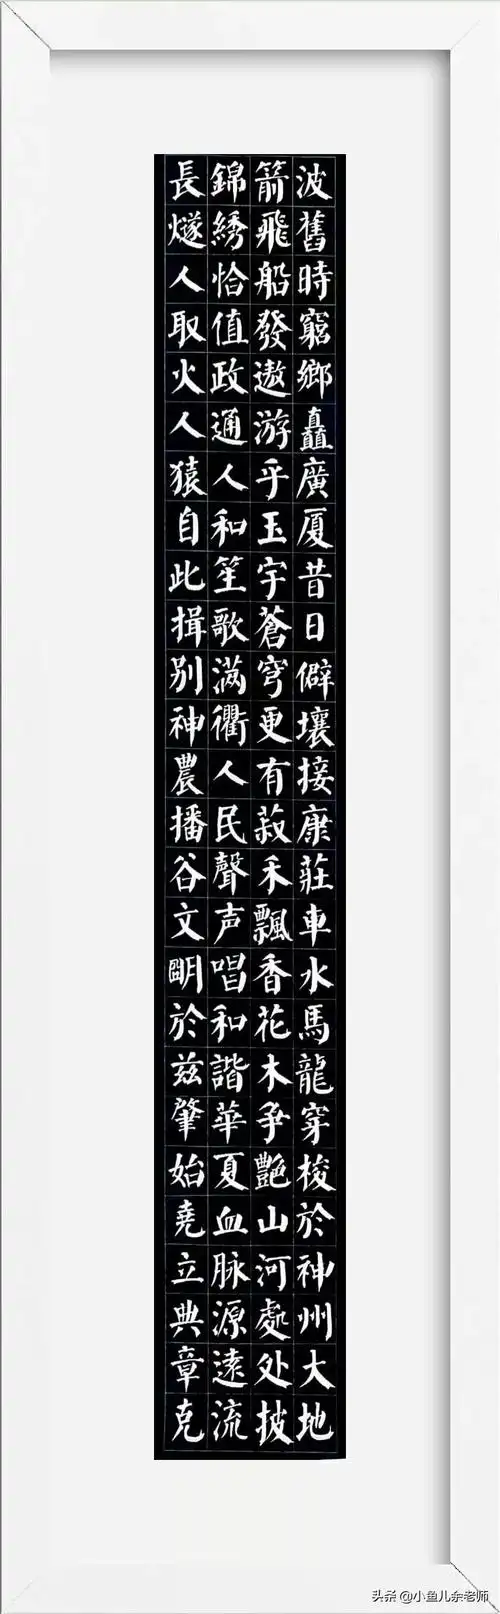 波舊時窮鄉矗廣厦昔日僻壤接康莊車水馬龍穿梭於神州大地
箭飛船發遨游乎玉宇蒼穹更有菽禾飄香花木争艷山河處处披
錦綉恰值政通人和笙歌滿衢人民聲声唱和諧華夏血脉源遠流
長燧人取火人猿自此揖别神農播谷文朙於兹肇始堯立典章克
头条 @小鱼儿余老师